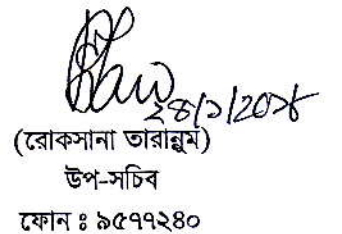 ২৪/১/২০১৮
(রোকসানা তারান্নুম)
উপ-সচিব
ফোন ঃ ৯৫৭৭২৪০